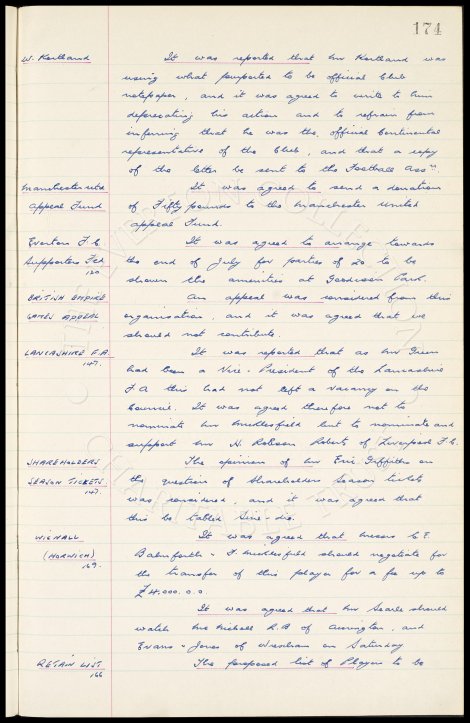 174
W. Kertland It was reported that Mr Kertland was
using what purported to be official Club
notepaper, and it was agreed to write to him
deprecating his action and to refrain from
inferring that he was the official Continental
representative of the Club, and that a copy
of the letter be sent to the Football Assn.
Manchester Utd It was agreed to send a donation
Appeal Fund of Fifty pounds to the Manchester United
appeal Fund.
Everton F.C. It was agreed to arrange towards
Supporters Fed the end of July for parties of 20 to be
120 shown the amenities at Goodison Park.
BRITISH EMPIRE An appeal was considered from this
GAMES APPEAL organisation, and it was agreed that we
should not contribute.
LANCASHIRE F.A. It was reported that as Mr Green
147. had been a Vice-President of the Lancashire
F A this had not left a vacancy on the
Council. It was agreed therefore not to
nominate Mr Micklesfield but to nominate and
support Mr H. Robson Roberts of Liverpool F.C.
SHAREHOLDERS The opinion of Mr Eric Griffiths on
SEASON TICKETS the question of Shareholders Season tickets
147. was considered, and it was agreed that
this be tabled Sine-die.
WIGNALL It was agreed that Messrs C E
(HORWICH) Balmforth & F. Micklesfield should negotiate for
169. the transfer of this player for a fee up to
£4,000.0.0
It was agreed that Mr Searle should
watch McNichol R.B of Accrington, and
Evans & Jones of Wrexham on Saturday
RETAIN LIST The proposed list of Players to be
166